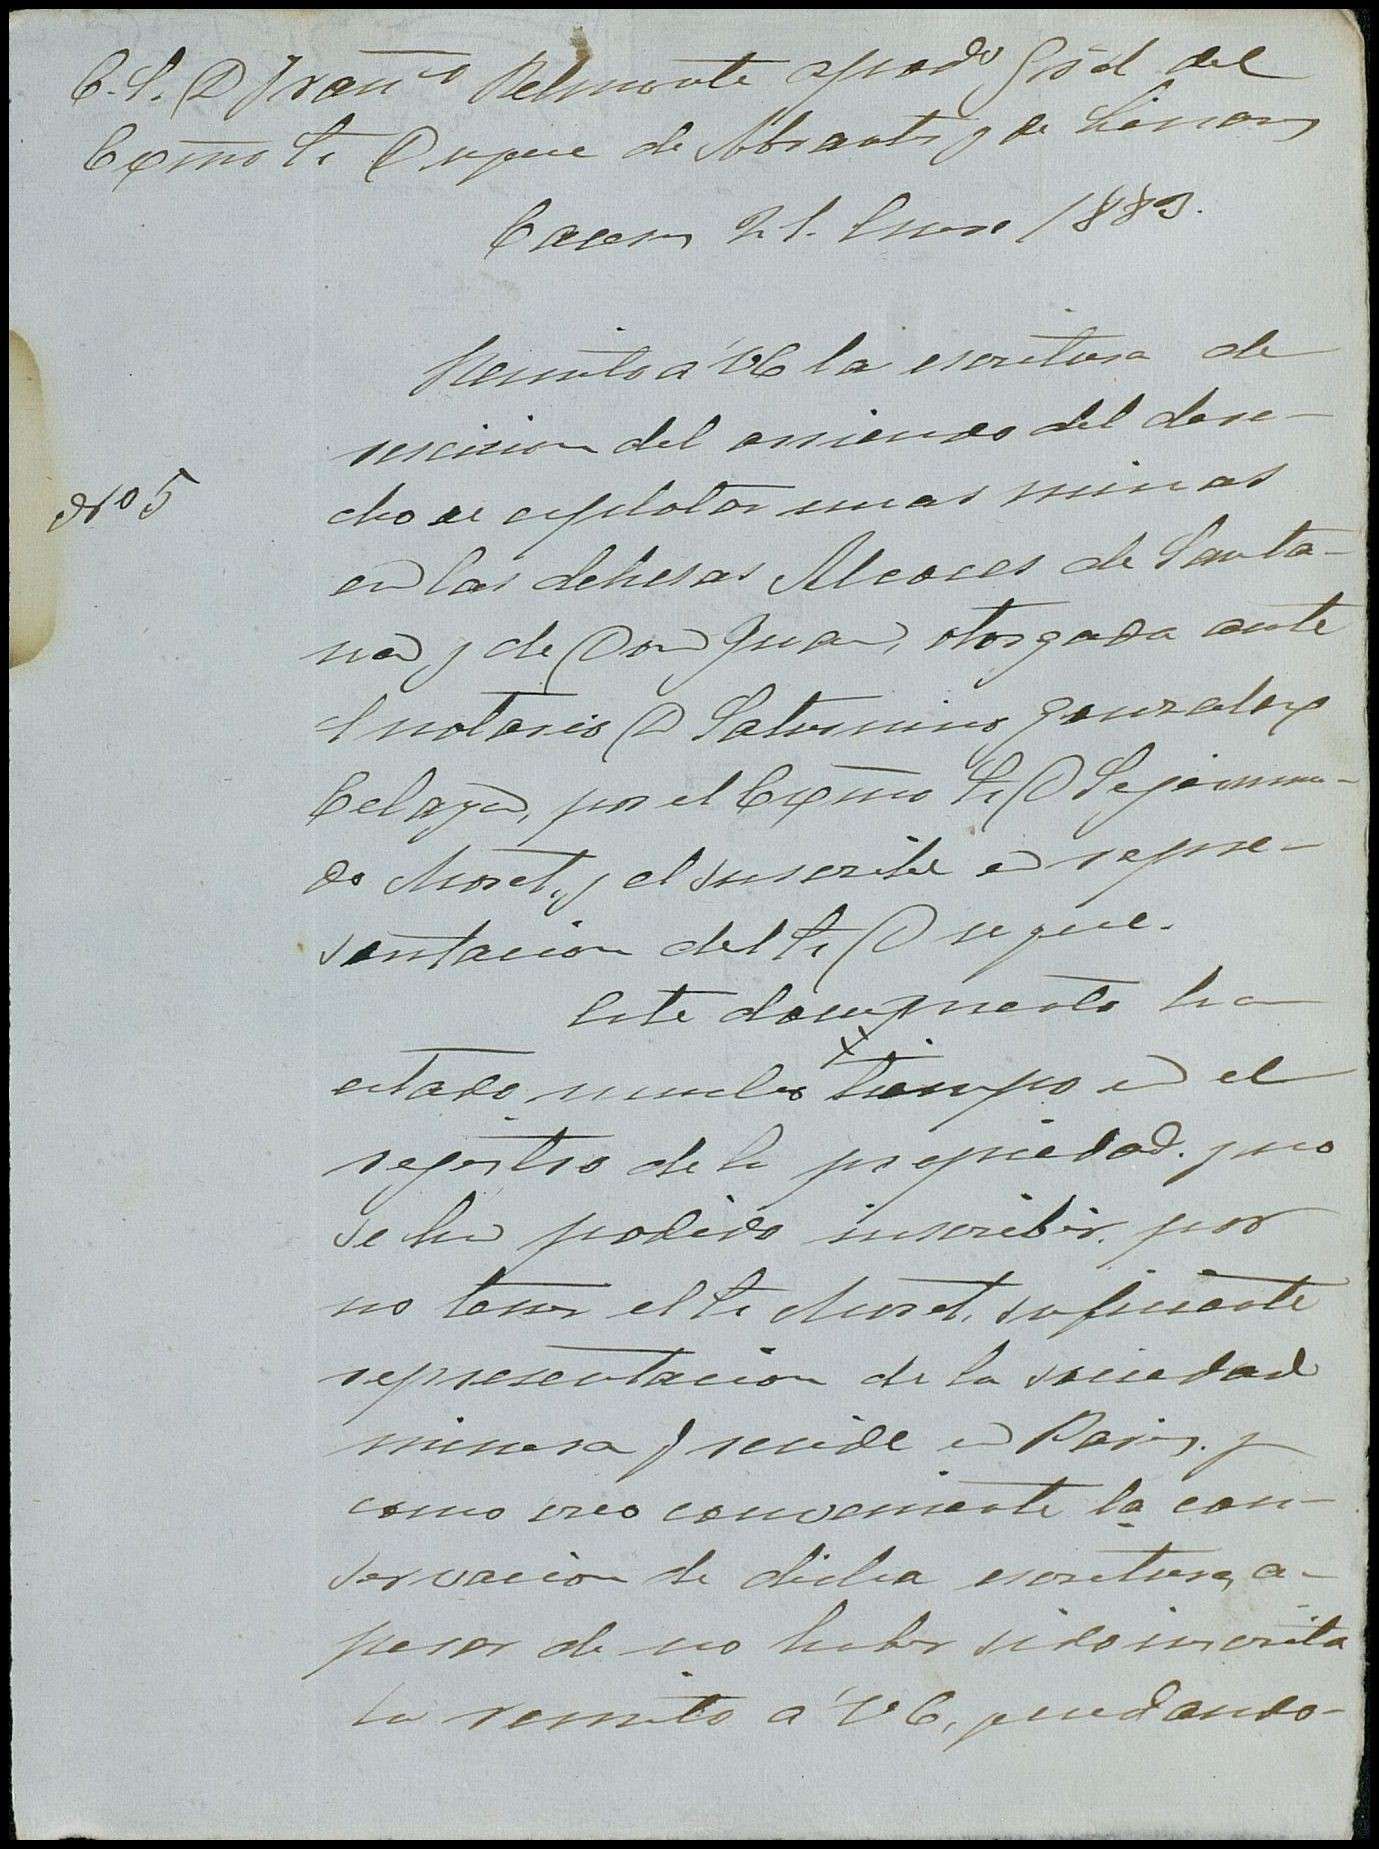 E. S. D Franco Belmonte apodo Gral del
Exmo Sr Duque de Abrantes y de Linares
Caceres 21. Enero 1883.
Remito a VE la escritura de
rescision del arriendo del dere-
cho de esplotar unas minas
en las dehesas Alcoces de Santa-
na y de Don Juan, otorgada ante
el notario D Saturnino Gonzalez
Celaya, por el Exmo Sr D Segismun-
do Moret, y el suscribe en repre-
sentacion del Sr Duque.
Nº 5
Este documento ha
estado mucho tiempo en el
registro de la propiedad. y no
se ha podido inscribir. por
no tener el Sr Moret, suficiente
representacion de la sociedad
minera q reside en Paris. y
como creo conveniente la con-
servacion de dicha escritura, a-
pesar de no haber sido inscrita
la remito a VE, quedando-